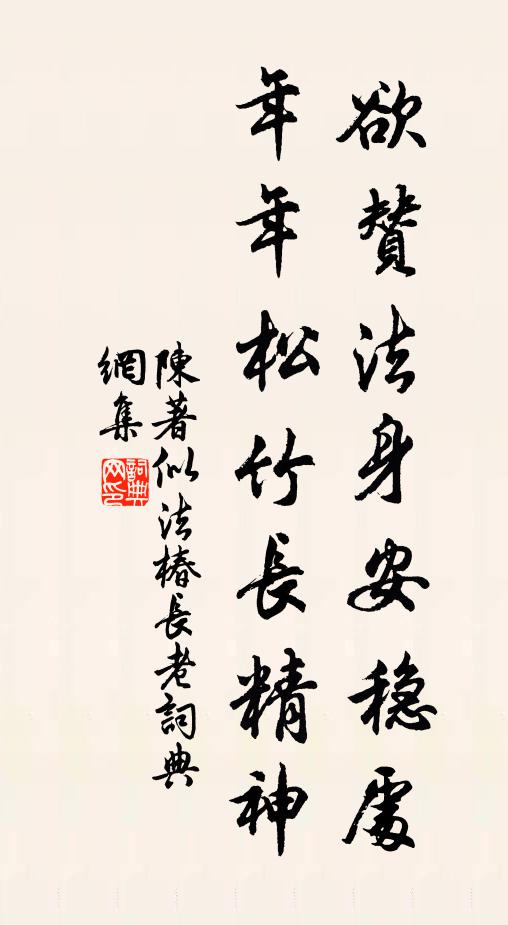 欲贊法身安穩處
年年松竹長精神
陳著似法椿長老詞典
網集
詞典
网印